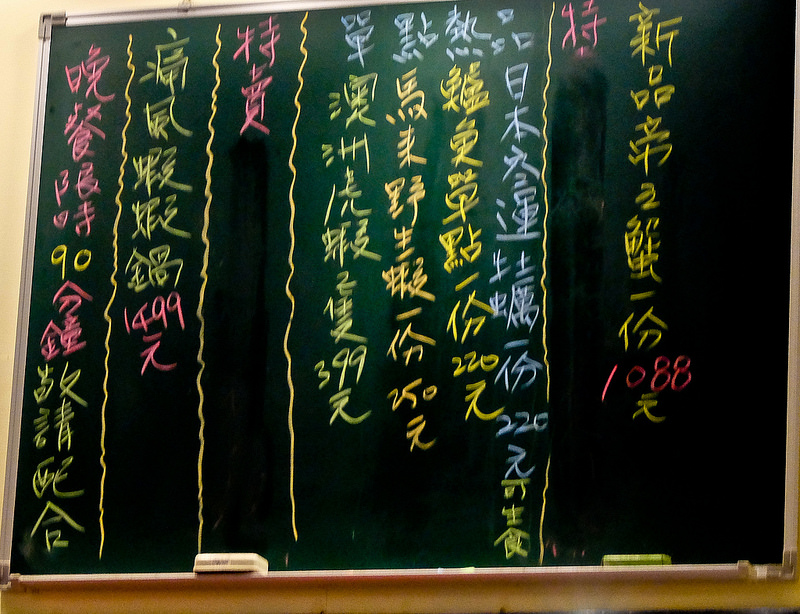 新品帝王蟹一份1088元
特
品日本空運牡蠣一份220元可生食
熱鱸魚單點一份220元
點馬來野生蝦一份250元
單澳洲虎蝦2隻399元
特賣
痛風蝦蝦鍋1499元
晚餐限時90分鐘敬請配合